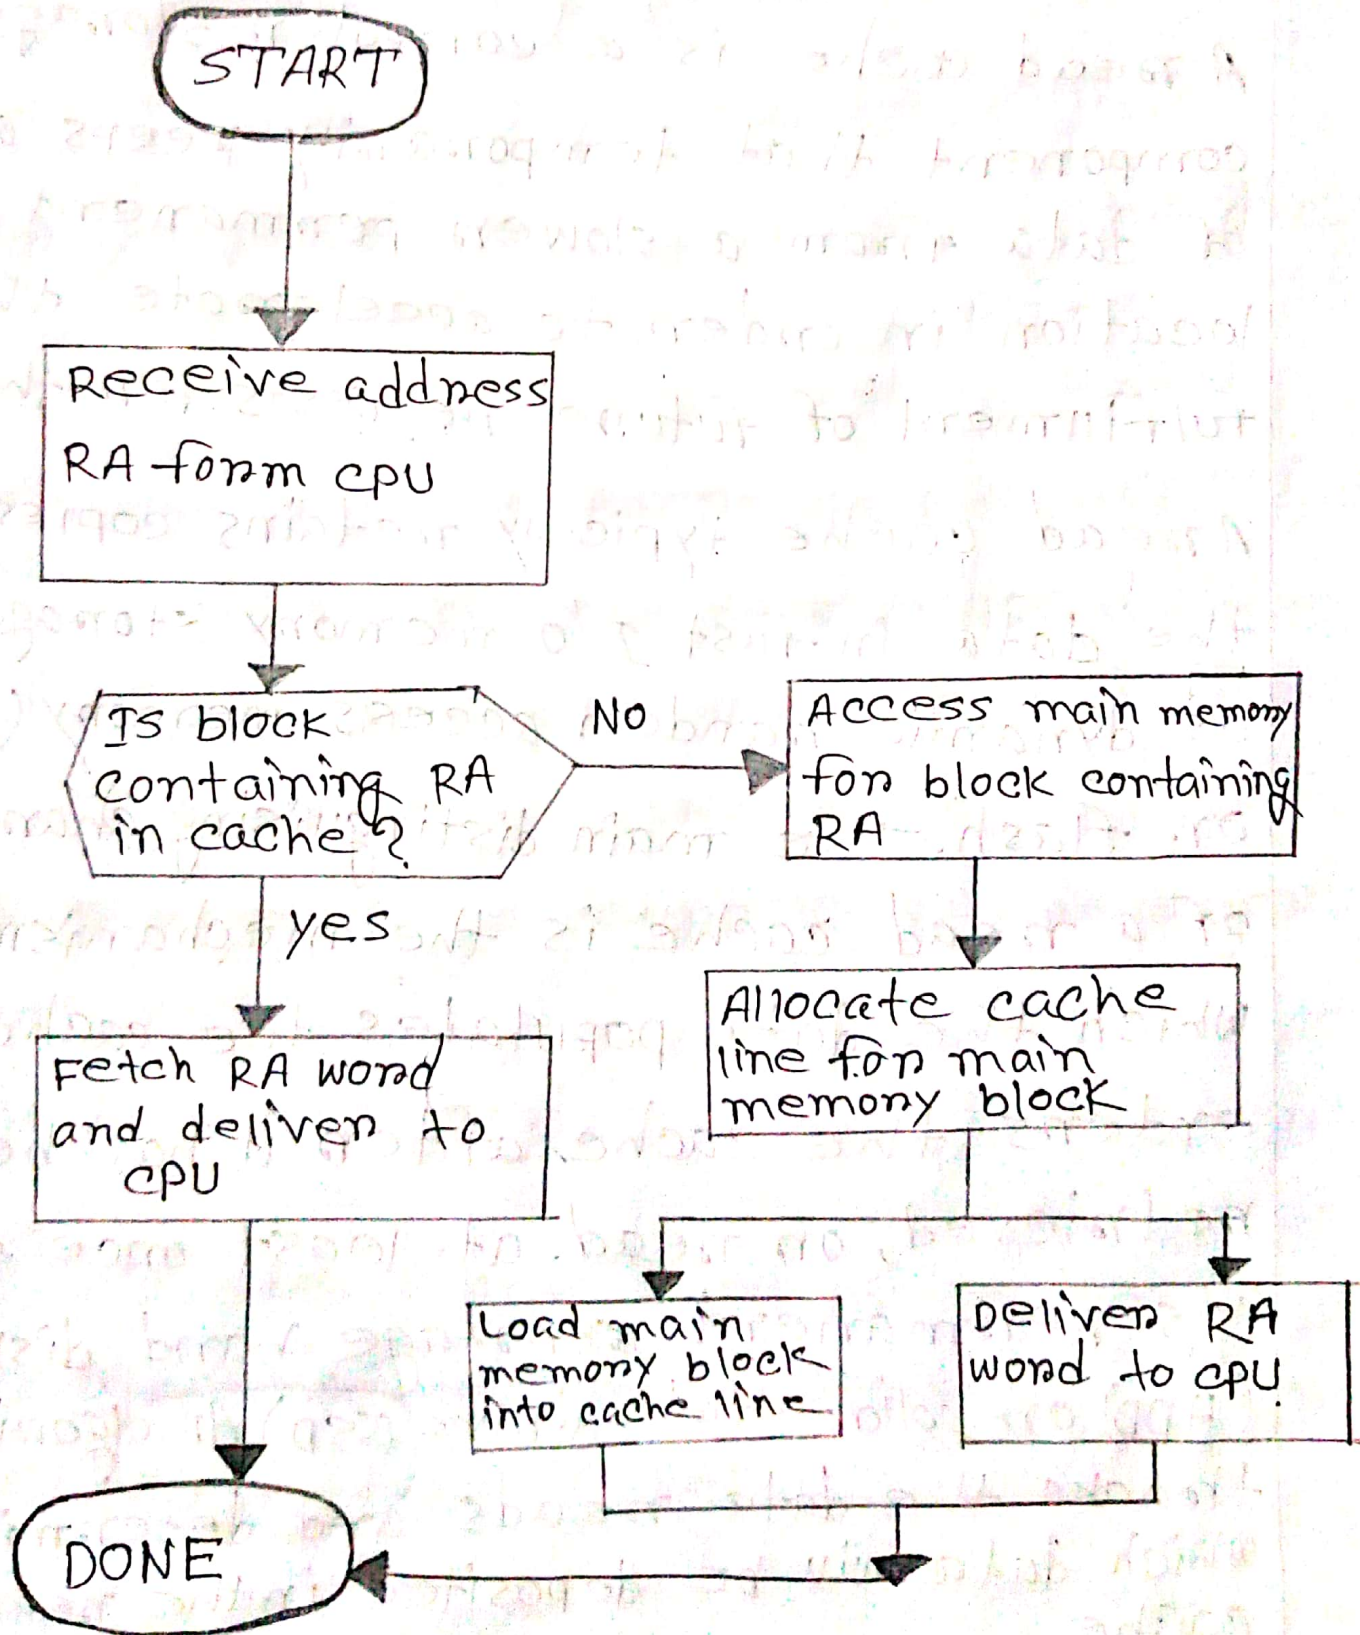 START
Receive address
RA form CPU
Is block
containing RA
in cache?
NO
Access main memory
for block containing
RA
yes
Allocate cache
line for main
memory block
Fetch RA word
and deliver to
CPU
Load main
memory block
into cache line
Deliver RA
word to CPU
DONE